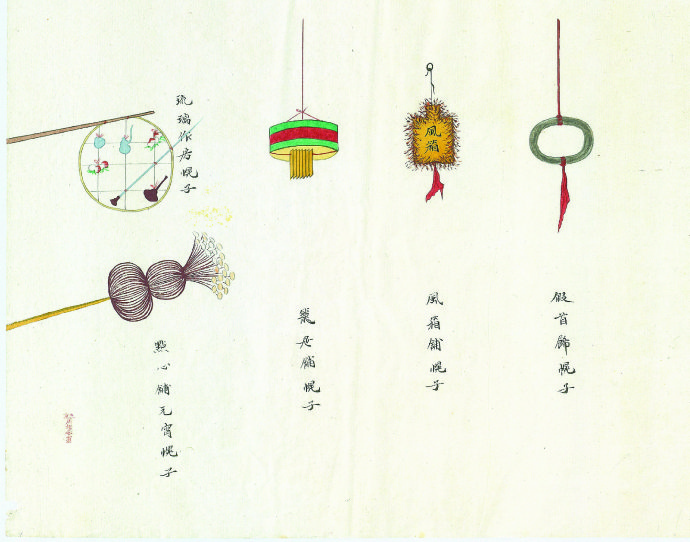 假首飾幌子
風箱
風箱鋪幌子
鋪幌子
琉璃作房幌子
點心鋪元宵幌子